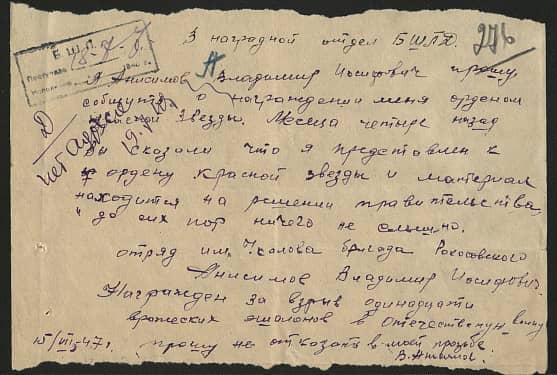 В наградной отдел БШПД.
276
Б. Ш. П. Д.
Я Анисимов Владимир Иосифович прошу
о награждении меня орденом
Красной Звезды. Месяца четыре назад
Вы сказали что я представлен к
ордену Красной звезды и материал
находится на решении правительства,
и до сих пор ничего не слышно.
отряд им. Чкалова бригада Рокосовского
Анисимов Владимир Иосифович.
Награжден за взрыв одинадцати
вражеских эшалонов в отечественную войну
15/III-47г. прошу не отказать в моей просьбе.
В. Анисимов
нет адреса